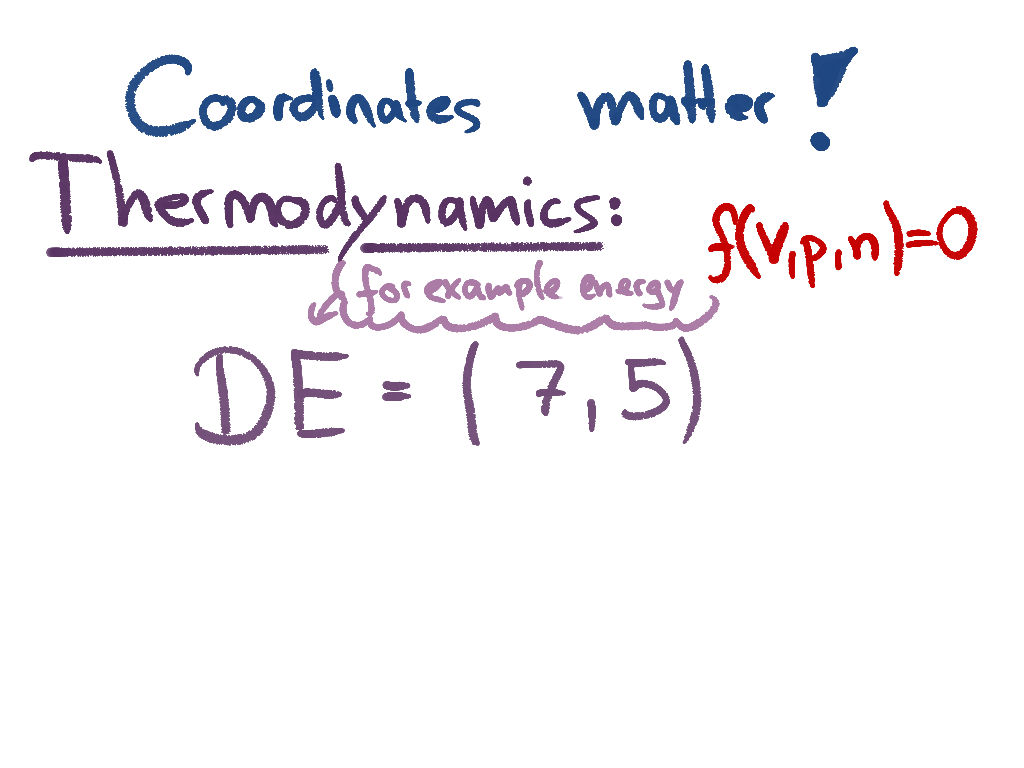 Coordinates matter!
Thermodynamics:
f(V,p,n)=0
for example energy
DE = (7,5)